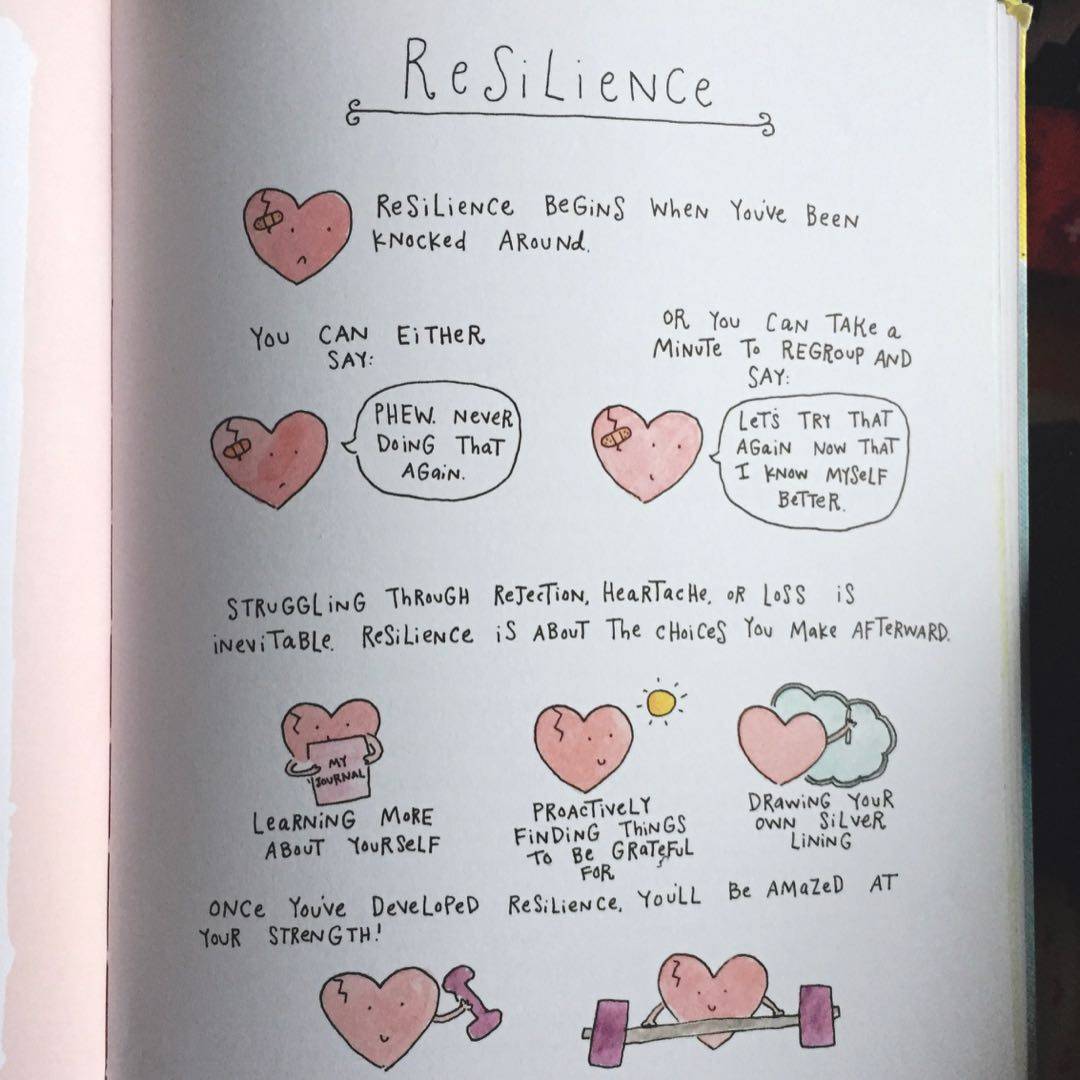 ReSiLieNCe
ReSiLieNCe BeGiNS WheN You've BeeN
KNocKed ARouNd.
You CAN EiTHeR
SAY:
OR You CaN TAKe a
MiNuTe To ReGRouP AND
SAY:
PHEW. NeveR
DoiNG ThaT
AGaiN.
LeT'S TRY ThAT
AGaiN Now ThaT
I KNow MYSeLF
BeTTeR.
STRuGGLiNG ThRouGH ReJecTioN, HeaRTacHe, oR LoSS iS
iNeviTaBLe. ReSiLieNCe iS ABouT The CHoiCeS You MaKe AFTeRWARD.
MY
JouRNAL
LeaRNiNG MoRe
ABouT YouRSeLF
PRoAcTiveLY
FiNDiNG ThiNGS
To Be GRaTeFuL
FoR
DRawiNG YouR
OWN SiLveR
LiNiNG
ONCe You've DeveLoPeD ReSiLieNCe, You'LL Be AMaZeD AT
YouR STReNGTH!